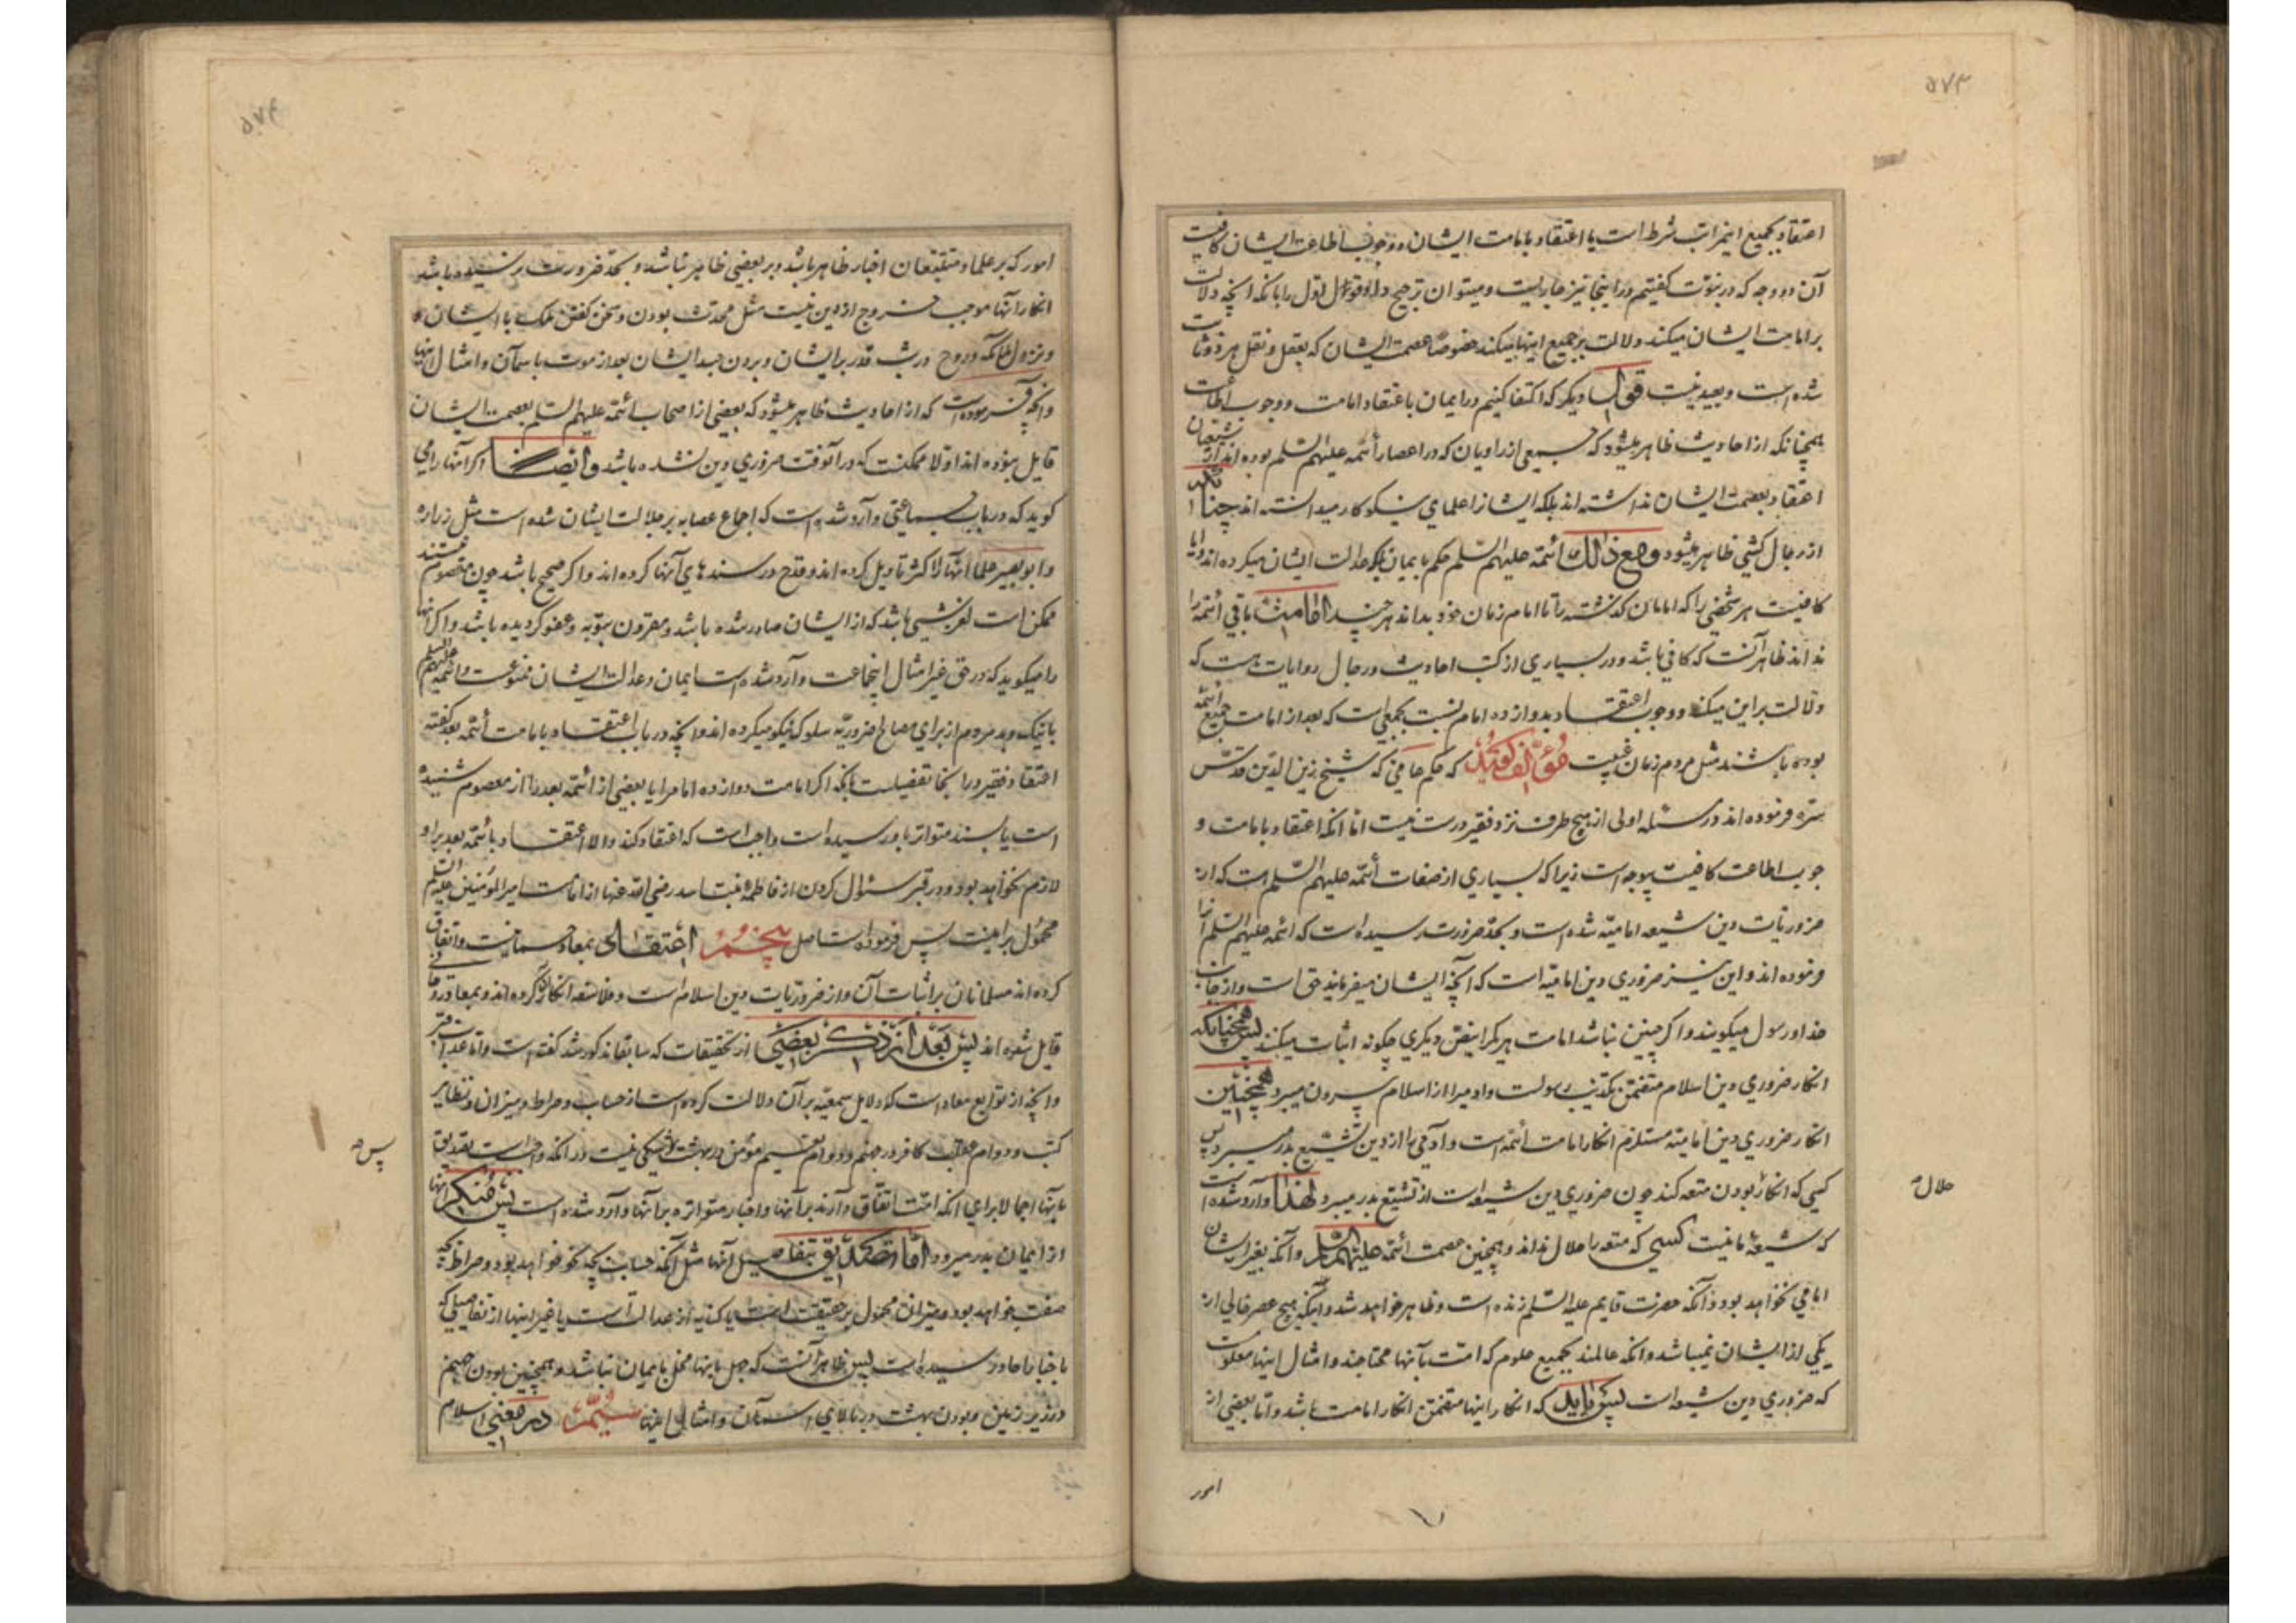 ۵۷۳
اعتقاد بجمیع این مراتب شرط است یا اعتقاد بامامت ایشان و وجوب اطاعت ایشان کافیست
آن دو وجه که در نبوّت گفتیم در اینجا نیز جاریست و میتوان ترجیح داد قول اول را بانکه انچه دلالت
بر امامت ایشان میکند دلالت بر جمیع اینها میکند خصوصًا عصمت ایشان که بعقل و نقل هر دو ثابت
شده است و بعید نیست قول دیگر که اکتفا کنیم در ایمان باعتقاد امامت و وجوب اطاعت
همچنانکه از احادیث ظاهر میشود که جمیعی از راویان که در اعصار أئمّه علیهم السّلم بوده اند از شیعیان
اعتقاد بعصمت ایشان نداشته اند بلکه ایشانرا علمای نیکوکار میدانسته اند چنانکه
از رجال کشی ظاهر میشود و مع ذالک أئمّه علیهم السّلم حکم بایمان بلکه عدالت ایشان میکرده اند و ایا
کافیست هر شخصی را که امامان گذشته را تا امام زمان خود بداند هر چند امامت باقی ائمّه را
نداند ظاهر آنست که کافی باشد و در بسیاری از کتب احادیث و رجال روایات هست که
دلالت بر این میکند و وجوب اعتقاد بدوازده امام نسبت بجمعی است که بعد از امامت جمیع ائمّه
بوده باشند مثل مردم زمان غیبت مؤلف گوید که حکم جامی که شیخ زین الدّین قدّس
سرّه فرموده اند در مسئله اولی از هیچ طرف نزد فقیر درست نیست امّا انکه اعتقاد بامامت و
جوب اطاعت کافیست بیوجه است زیرا که بسیاری از صفات أئمّه علیهم السّلم است که از
ضروریّات دین شیعه امامیّه شده است و بحدّ ضرورت رسیده است که ائمّه علیهم السلم آنرا
فرموده اند و این نیز ضروری دین امامیّه است که آنچه ایشان میفرمایند حق است و از جانب
خدا و رسول میگویند و اگر چنین نباشد امامت هر یکرا بنصّ دیگری چگونه اثبات میکنند پس همچنانکه
انکار ضروری دین اسلام متضمّن تکذیب رسولست و ادمیرا از اسلام بیرون میبرد همچنین
انکار ضروری دین امامیّه مستلزم انکار امامت أئمّه است و آدمی را از دین تشیّع بدر میبرد پس
کسی که انکار بودن متعه کند چون ضروری دین شیعه است از تشیّع بدر میبرد لهذا وارد شده است
حلال صح
که شیعهٔ ما نیست کسی که متعه را حلال نداند و همچنین عصمت ائمّه علیهم السلم و آنکه بغیر ایشان
امامی نخواهد بود و آنکه حضرت قایم علیه السّلم زنده است و ظاهر خواهد شد و آنکه هیچ عصر خالی از
یکی از ایشان نمیباشد و انکه عالمند بجمیع علوم که امّت بآنها محتاجند و امثال اینها معلومست
که ضروری دین شیعه است پس باید که انکار اینها متضمّن انکار امامت باشد و امّا بعضی از
امور
۵۷۴
امور که بر علما و متتبّعان اخبار ظاهر باشد و بر بعضی ظاهر نباشد و بحدّ ضرورت نرسیده باشد
انکار آنها موجب خروج از دین نیست مثل محدّث بودن و سخن گفتن ملک با ایشان
و نزول ملائکه و روح در شب قدر بر ایشان و بردن جسد ایشان بعد از موت باسمان و امثال اینها
و انچه فرموده است که از احادیث ظاهر میشود که بعضی از اصحاب أئمّه علیهم السّلم بعصمت ایشان
قایل نبوده اند اوّلا ممکنست که در آنوقت ضروری دین نشده باشد و ایضًا اگر آنها را می
گوید که در باب جماعتی وارد شده است که اجماع عصابه بر جلالت ایشان شده است مثل زراره
و ابو بصیر علما آنها را اکثر تاویل کرده اند و قدح در سندهای آنها کرده اند و اگر صحیح باشد چون معصوم نیستند
ممکن است لغزشی باشد که از ایشان صادر شده باشد و مقرون بتوبه و عفو گردیده باشد و اگر انها
را میگوید که در حق غیر امثال اینجماعت وارد شده است ایمان و عدالت ایشان ممنوعست و ائمه علیهم السلم
با نیک و بد مردم از برای مصالح ضروریّه سلوک نیکو میکرده اند و انچه در باب اعتقاد بامامت أئمّه بعد گفته
اعتقاد فقیر در اینجا تفصیلست بانکه اگر امامت دوازده امام را یا بعضی از ائمّه بعد را از معصوم شنیده
است یا بسند متواتر باو رسیده است واجب است که اعتقاد کند و الا اعتقاد بائمّه بعد بر او
لازم نخواهد بود و در قبر سئوال کردن از فاطمه بنت اسد رضی الله عنها از امامت امیر المؤمنین علیه السلم
محمول بر اینست پس فرموده است اصل پنجم اعتقاد بمعاد جسمانیست و اتفاق
کرده اند مسلمانان بر اثبات آن و از ضروریّات دین اسلام است و فلاسفه انکار آن کرده اند و بمعاد روحانی
قایل شده اند پس بعد از ذکر بعضی از تحقیقات که سابقا مذکور شد گفته است و امّا عذاب قبر
و انچه از توابع معاد است که دلایل سمعیّه بر آن دلالت کرده است از حساب و صراط و میزان و تطایر
کتب و دوام عقاب کافر در جهنم و دوام نعیم مؤمن در بهشت شکی نیست در انکه واجبست تصدیق
پس صح
بآنها اجمالا برای انکه امّت اتّفاق دارند بر آنها و اخبار متواتره بر آنها وارد شده است پس منکر انها
از ایمان بدر میرود امّا تصدیق بتفاصیل آنها مثل آنکه حساب بچه نحو خواهد بود و صراط بچه
صفت خواهد بود و میزان محمول بر حقیقت است یا کنایه از عدالت است یا غیر اینها از تفاصیلی که
باخبار احاد رسیده است پس ظاهر آنست که جهل باینها مخلّ بایمان نباشد و همچنین بودن جهنم
در زیر زمین و بودن بهشت در بالای اسمان و امثال اینها در معنی اسلام